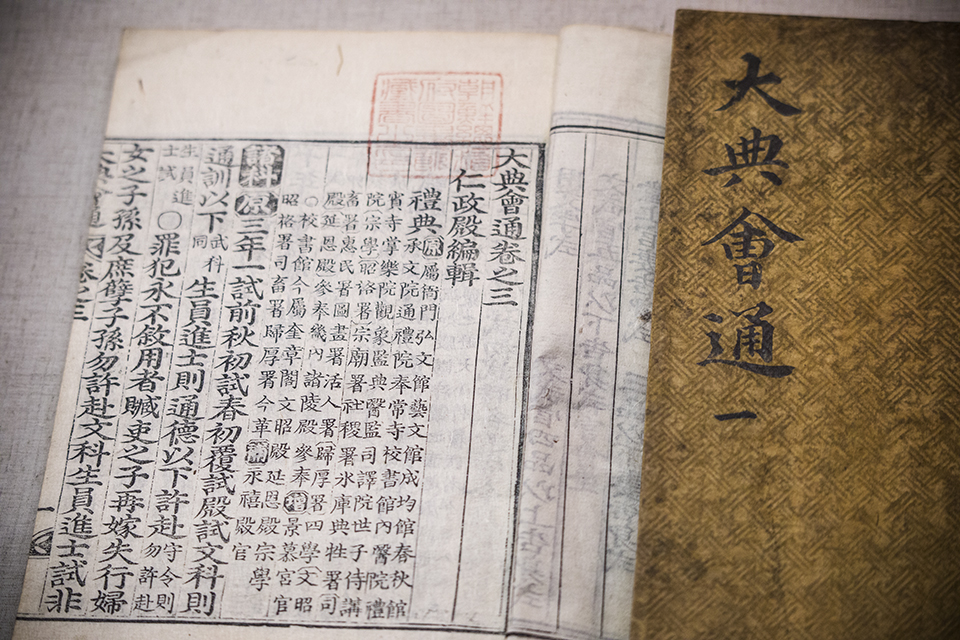 大典會通
一
大典會通卷之三
仁政殿編輯
禮典原屬衙門弘文館藝文館成均館春秋館
承文院通禮院奉常寺校書館內醫院禮
賓寺掌樂院觀象監典醫監司譯院世子侍講
院宗學昭格署宗廟署社稷署氷庫典牲署司
畜署惠民署圖畫署活人署歸厚署四學文昭
殿延恩殿參奉畿內諸陵殿參奉增景慕宮官
○校書館今屬奎章閣文昭殿延恩殿宗學
昭格署司畜署歸厚署今革補永禧殿官
諸科原三年一試前秋初試春初覆試殿試文科則
通訓以下武科同生員進士則通德以下許赴守令則勿許赴
生員進士試○罪犯永不敘用者贓吏之子再嫁失行婦
女之子孫及庶孽子孫勿許赴文科生員進士試非
卷之三
一